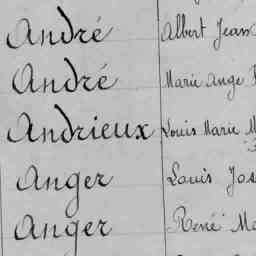 André Albert Jean
André Marie Ange
Andrieux Louis Marie M
Anger Louis Jos
Anger René Ma